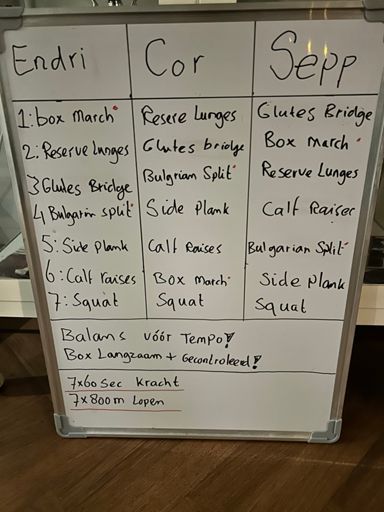 Endri Cor Sepp
1: box March Resere Lunges Glutes Bridge
2: Reserve Lunges Glutes bridge Box March
3 Glutes Bridge Bulgrian Split Reserve Lunges
4 Bulgarin split Side Plank Calf Raiser
5: Side Plank Calf Raises Bulgarian Split
6: Calf raises Box March Side Plank
7: Squat Squat Squat
Balans vóór Tempo!
Box Langzaam + Gecontroleerd!
7x60 Sec Kracht
7x800m Lopen